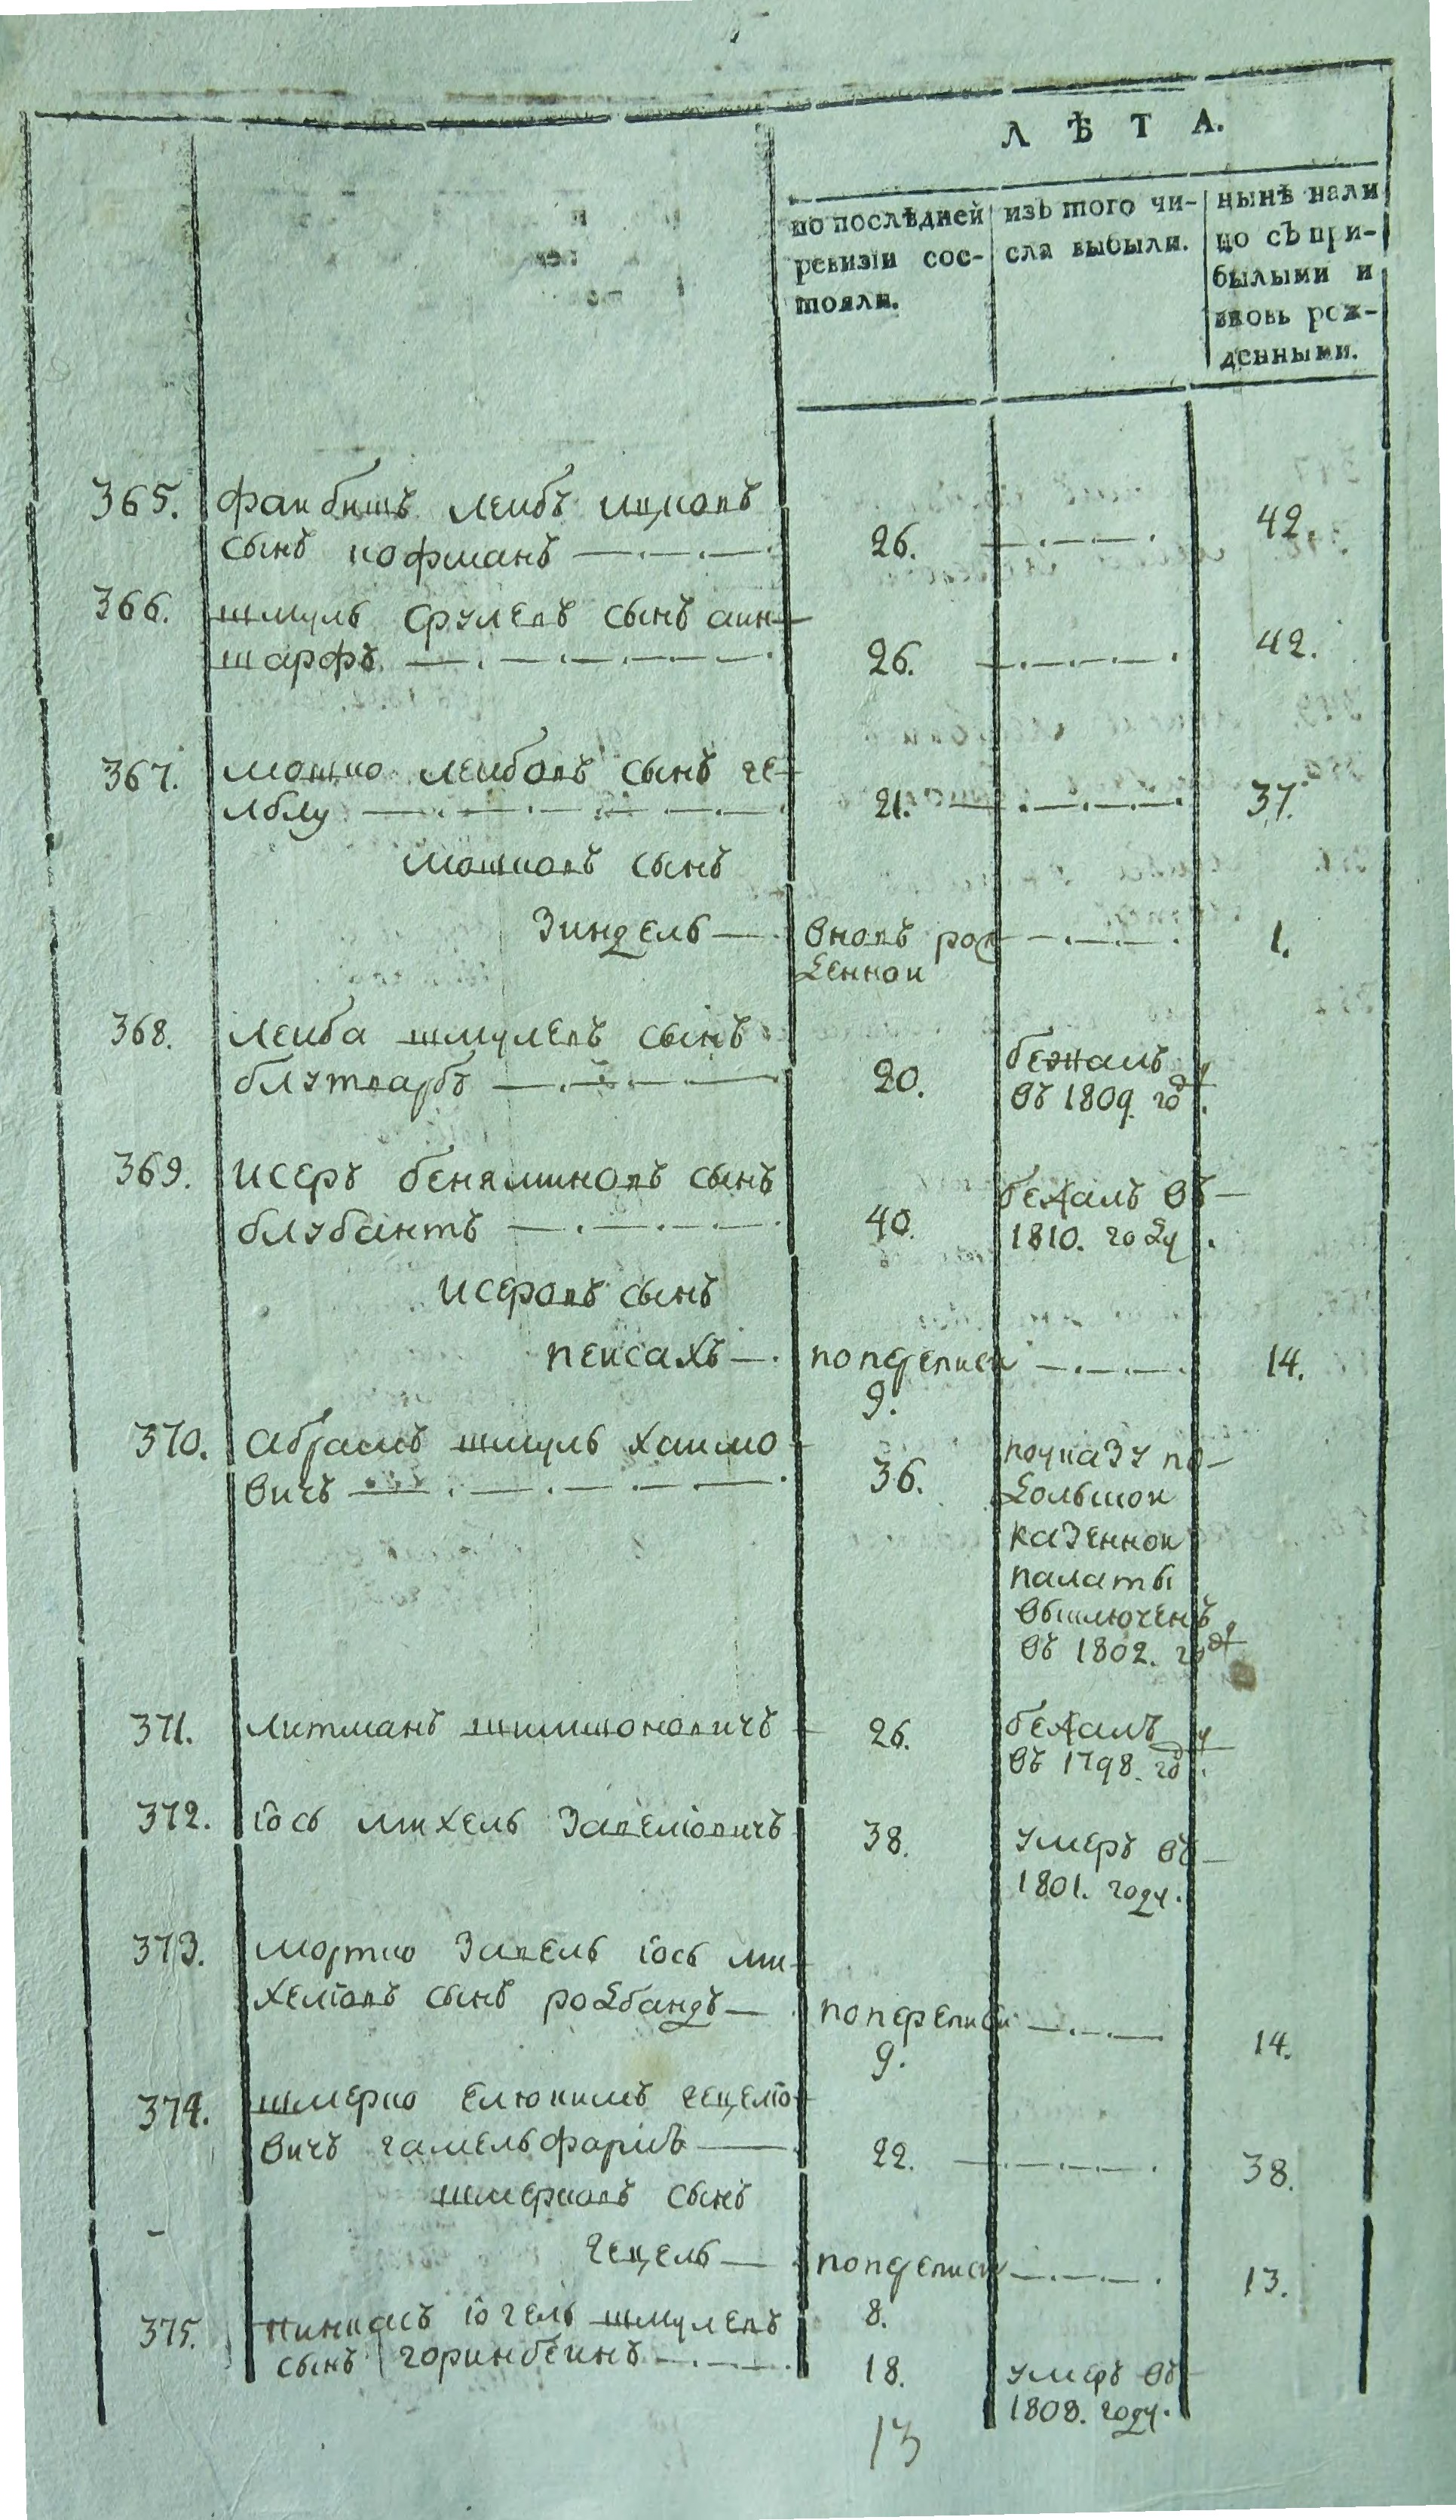 Л Ѣ Т А.
по послѣдней ревизіи сос-тояли.
изъ того чи-сла выбыли.
нынѣ нали цо съ при-былыми и вновь рож-денными.
365. фаибишъ леибъ ицковъ
сынъ кофманъ 26. 42.
366. шмуль срулевъ сынъ аин-
шарфъ 26. 42.
367. мошко леибовъ сынъ ге-
лблу 21. 37.
мошковъ сынъ
Зиндель вновь рож 1.
денной
368. Леиба шмулевъ сынъ бежалъ
блутварбъ 20. въ 1809. году.
369. исеръ беняминовъ сынъ бежалъ въ
блубантъ 40. 1810. году.
исеровъ сынъ
пеисахъ попереписи 14.
9.
370. Абрамъ шмуль хаимо поуказу по-
вичъ 36. дольскои
казеннои
палаты
выключенъ
въ 1802. году
371. литманъ шимшоновичъ 26. бежалъ
въ 1798. году.
372. іось михель Завеліовичъ 38. умеръ въ
1801. году.
373. мортко Завель іось ми-
хеліовъ сынъ родбандъ попереписи 14.
9.
374. шмерко елюкимъ гецеліо
вичъ гамельфарнъ 22. 38.
шмерковъ сынъ
гецель попереписи 13.
8.
375. пинкасъ югель шмулевъ
сынъ горинбеинъ 18. умеръ въ
1808. году.
13